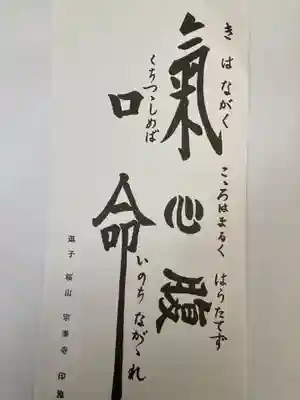 きはながく
氣
こころはまるく
心
はらたてず
腹
くちつゝしめば
口
いのちながゝれ
命
逗子